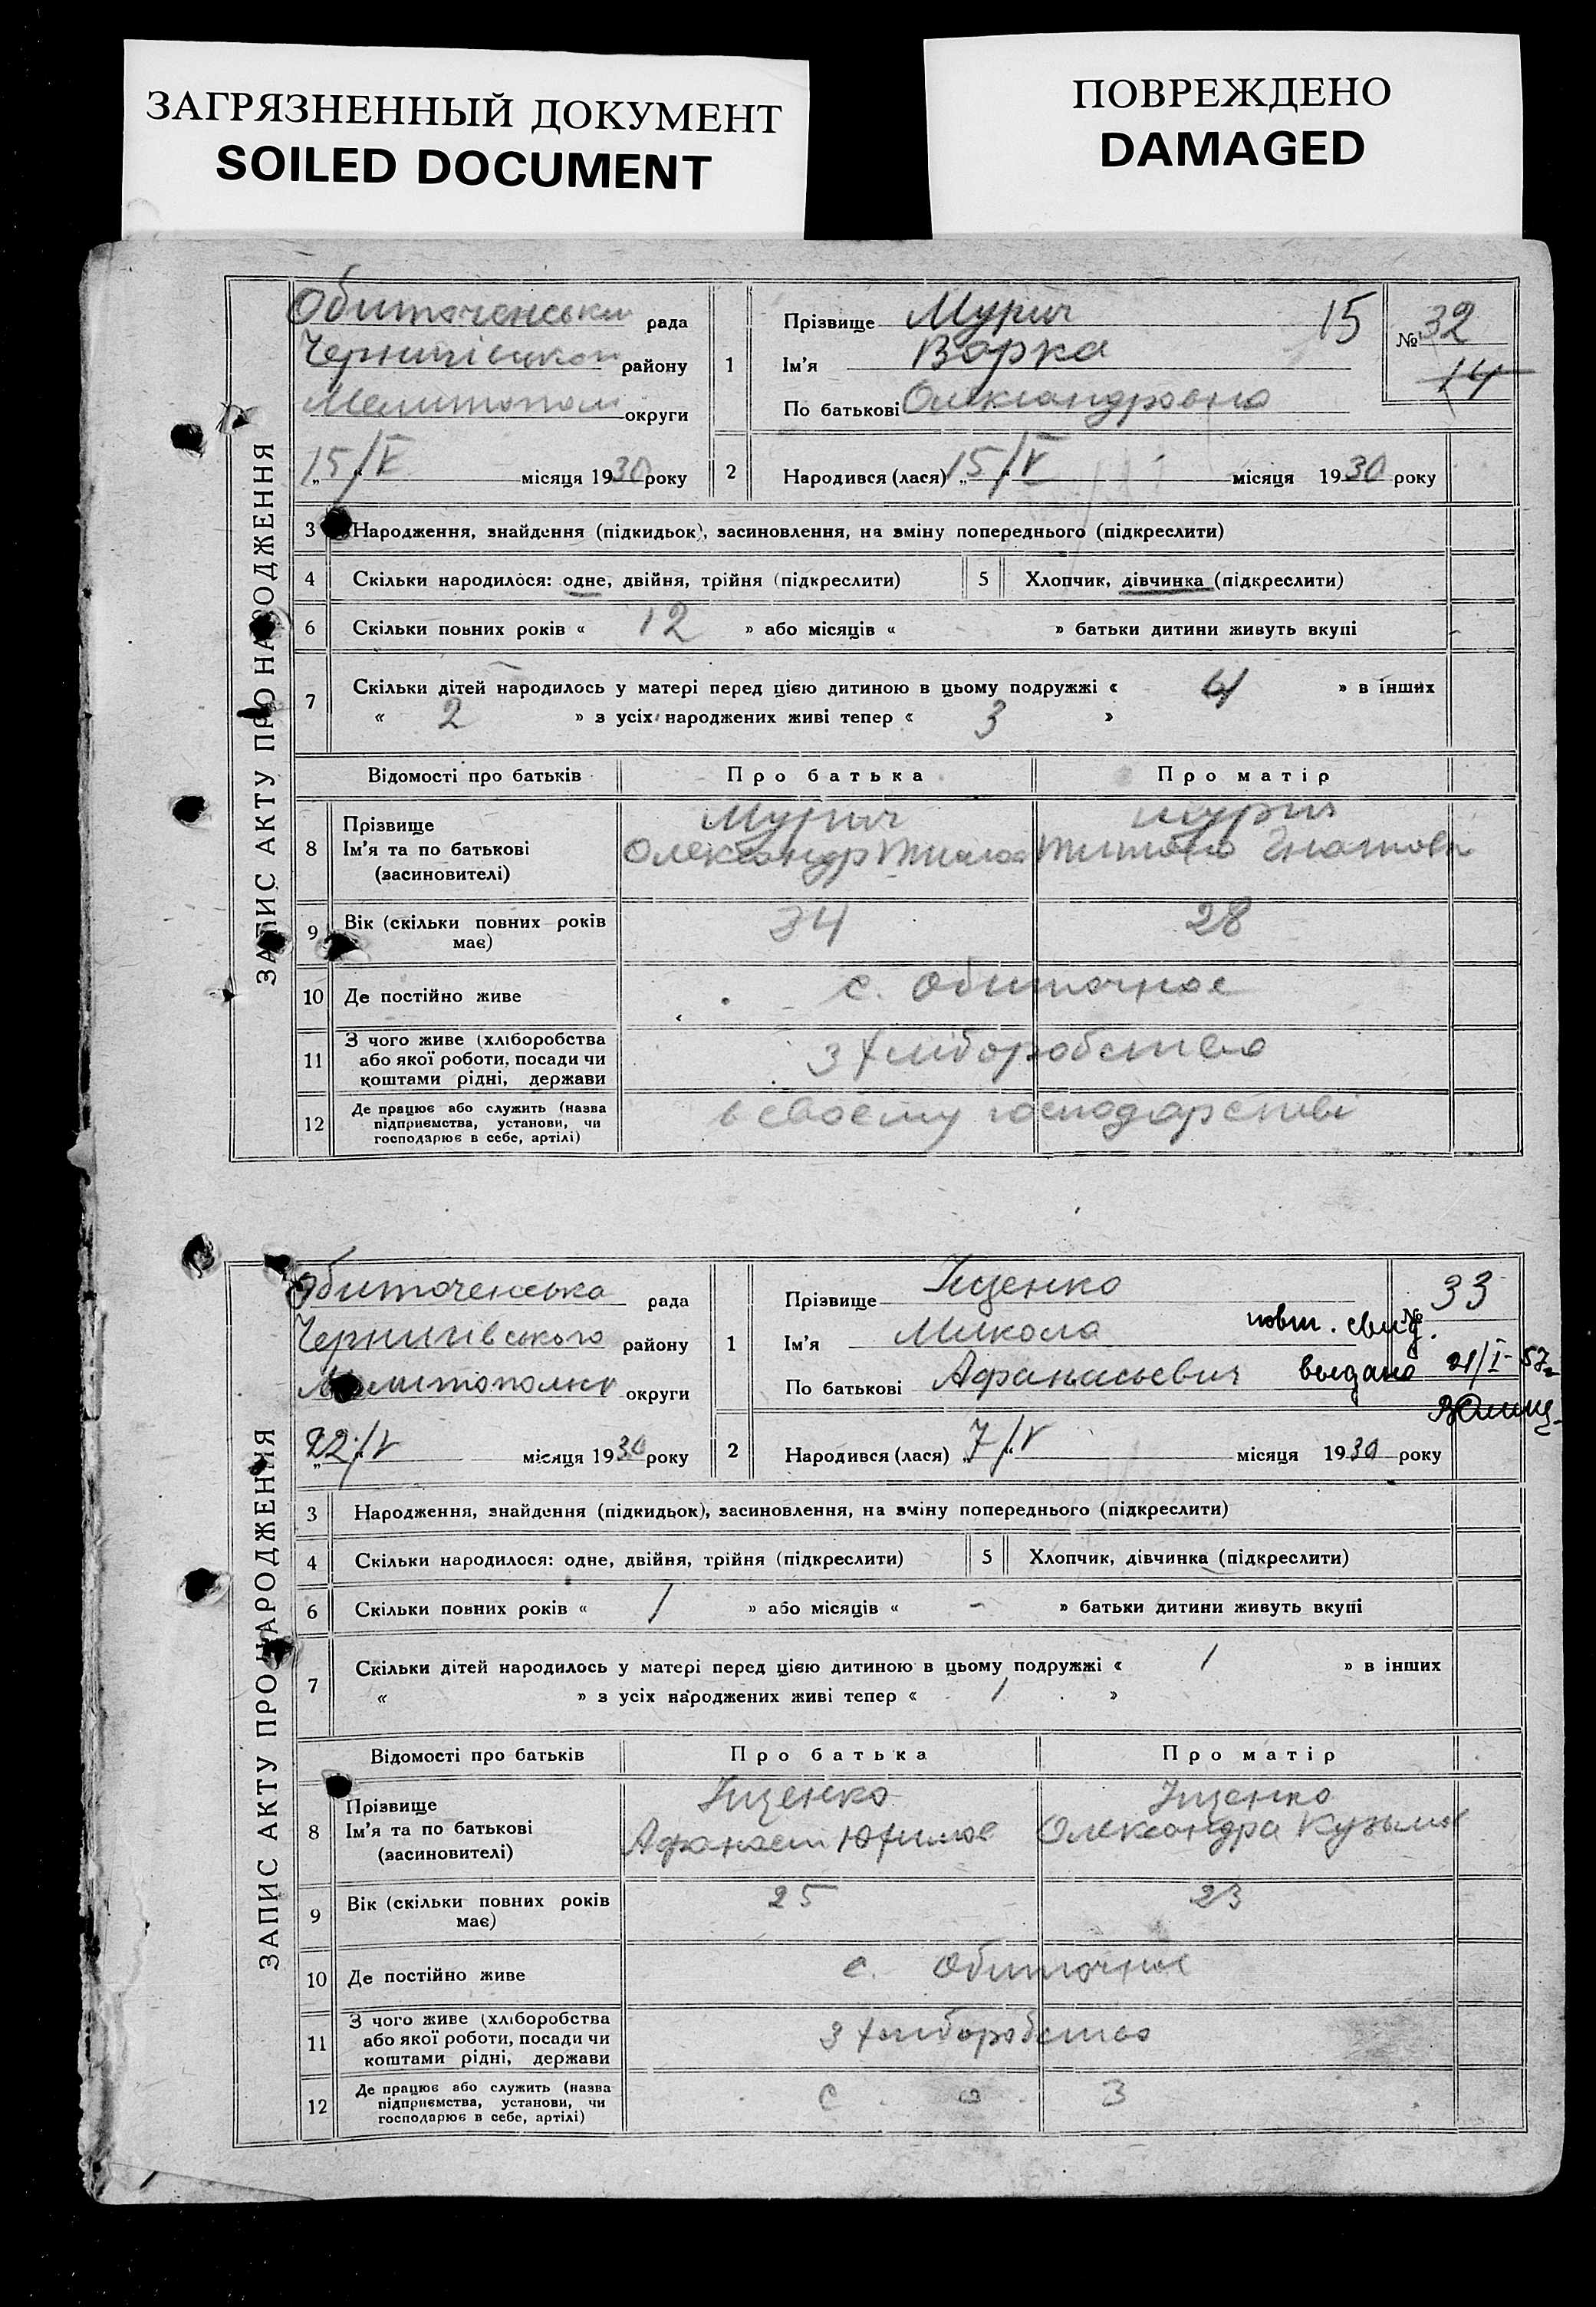 ЗАГРЯЗНЕННЫЙ ДОКУМЕНТ
SOILED DOCUMENT
ПОВРЕЖДЕНО
DAMAGED
ЗАПИС АКТУ ПРО НАРОДЖЕННЯ
Обиточенськи рада
району
Мелитопол округи
„15/V" місяця 1930 року
1
Прізвище Мурич 15
Ім'я Варка
По батькові Олександровна
№ 32
14
2
Народився (лася) „15/V" місяця 1930 року
3 Народження, знайдення (підкидьок), засиновлення, на зміну попереднього (підкреслити)
4 Скільки народилося: одне, двійня, трійня (підкреслити) 5 Хлопчик, дівчинка (підкреслити)
6 Скільки повних років « 12 » або місяців « - » батьки дитини живуть вкупі
7 Скільки дітей народилось у матері перед цією дитиною в цьому подружжі « 4 » в інших
« 2 » з усіх народжених живі тепер « 3 »
Відомості про батьків Про батька Про матір
8 Прізвище Мурич Мурич
Ім'я та по батькові Олександр
(засиновителі)
9 Вік (скільки повних років має) 34 28
10 Де постійно живе с. Обиточное
11 З чого живе (хліборобства або якої роботи, посади чи коштами рідні, держави з хліборобства
12 Де працює або служить (назва підприємства, установи, чи господарює в себе, артілі) в своєму господарстві
ЗАПИС АКТУ ПРО НАРОДЖЕННЯ
Обиточенська рада
Чернигівського району
округи
„22/V" місяця 1930 року
1
Прізвище Іщенко
Ім'я Микола
По батькові Афанасьевич
№ 33
повт. свид.
выдано 21/I-57г
2
Народився (лася) „7/V" місяця 1930 року
3 Народження, знайдення (підкидьок), засиновлення, на зміну попереднього (підкреслити)
4 Скільки народилося: одне, двійня, трійня (підкреслити) 5 Хлопчик, дівчинка (підкреслити)
6 Скільки повних років « 1 » або місяців « - » батьки дитини живуть вкупі
7 Скільки дітей народилось у матері перед цією дитиною в цьому подружжі « 1 » в інших
« » з усіх народжених живі тепер « 1 »
Відомості про батьків Про батька Про матір
8 Прізвище Іщенко Іщенко
Ім'я та по батькові Олександра
(засиновителі)
9 Вік (скільки повних років має) 25 23
10 Де постійно живе с. Обиточное
11 З чого живе (хліборобства або якої роботи, посади чи коштами рідні, держави з хліборобства
12 Де працює або служить (назва підприємства, установи, чи господарює в себе, артілі)